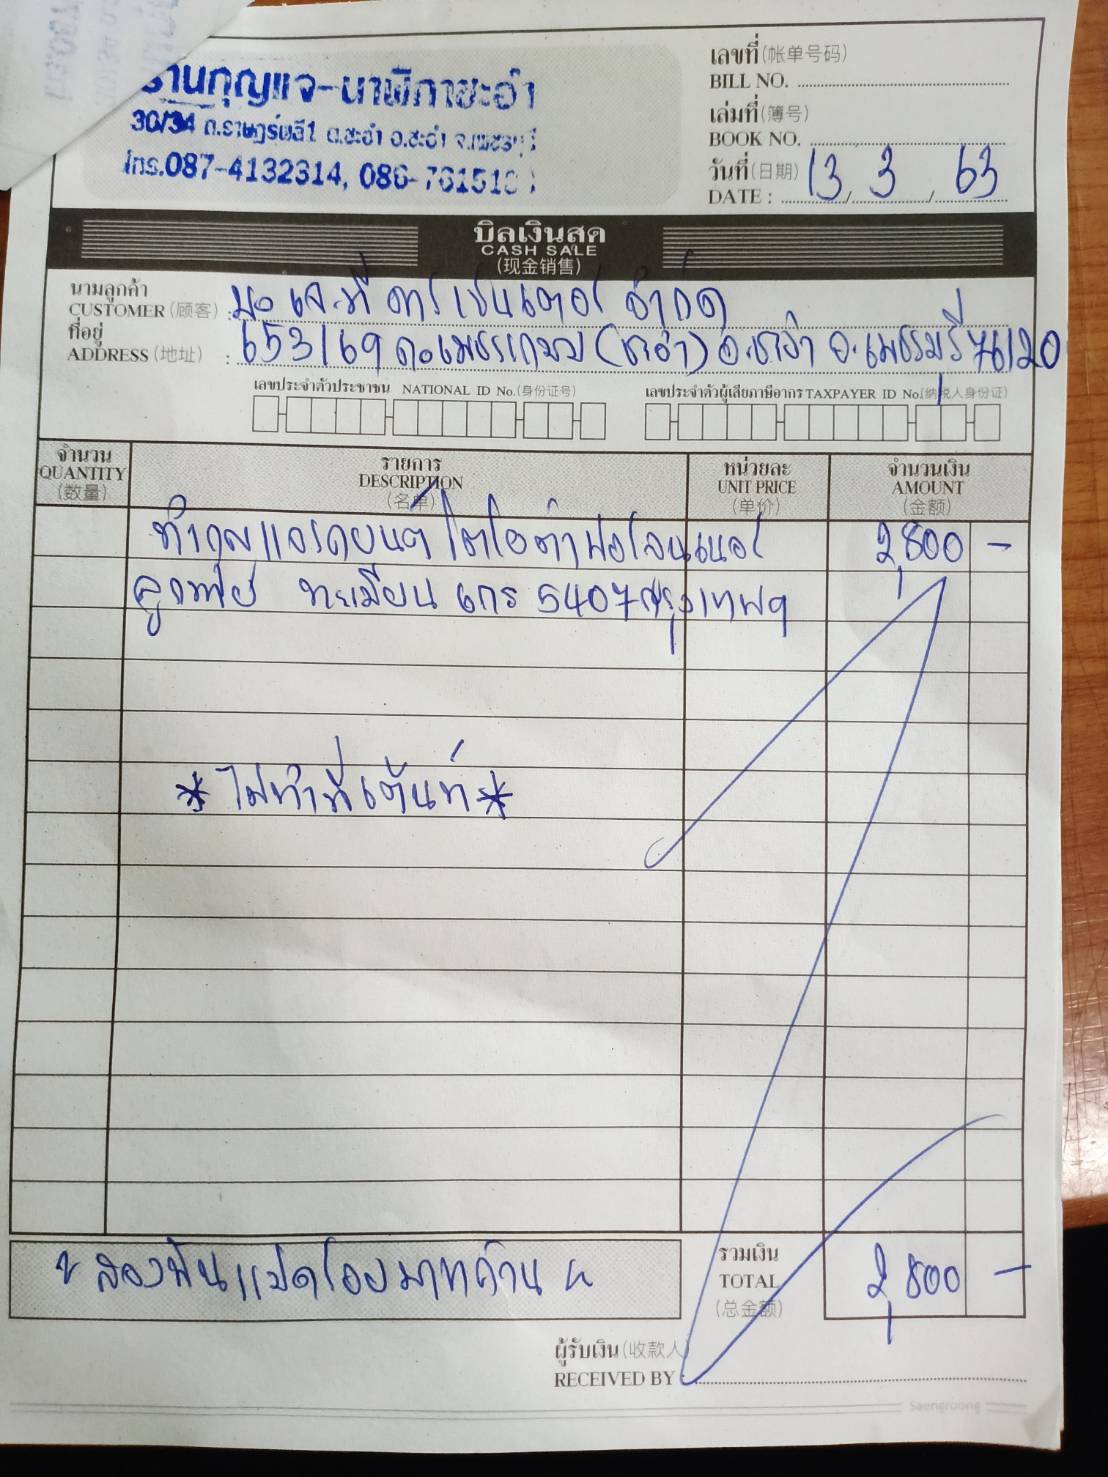 ร้านกุญแจ-นาฬิกาชะอำ
30/34 ถ.ราษฎร์พลี1 ต.ชะอำ อ.ชะอำ จ.เพชรบุรี
โทร.087-4132314, 086-761510
เลขที่(帐单号码)
BILL NO.
เล่มที่(簿号)
BOOK NO.
วันที่(日期) 13 / 3 / 63
DATE :
บิลเงินสด
CASH SALE
(现金销售)
นามลูกค้า
CUSTOMER (顾客) : จำกัด
ที่อยู่
ADDRESS (地址) : 653/69 ถ.เพชรเกษม (ชะอำ) อ.ชะอำ จ.เพชรบุรี 76120
เลขประจำตัวประชาชน NATIONAL ID No.(身份证号)
เลขประจำตัวผู้เสียภาษีอากร TAXPAYER ID No.(纳税人身份证)
จำนวน รายการ หน่วยละ จำนวนเงิน
QUANTITY DESCRIPTION UNIT PRICE AMOUNT
(数量) (名单) (单价) (金额)
ทำกุญแจรถยนต์ โตโยต้าฟอร์จูนเนอร์ 2,800 -
ทะเบียน 5407 กรุงเทพฯ
*ไม่ทำที่เต้นท์*
สองพันแปดร้อยบาทถ้วน
รวมเงิน
TOTAL 2,800 -
(总金额)
ผู้รับเงิน(收款人)
RECEIVED BY :
Saengroong